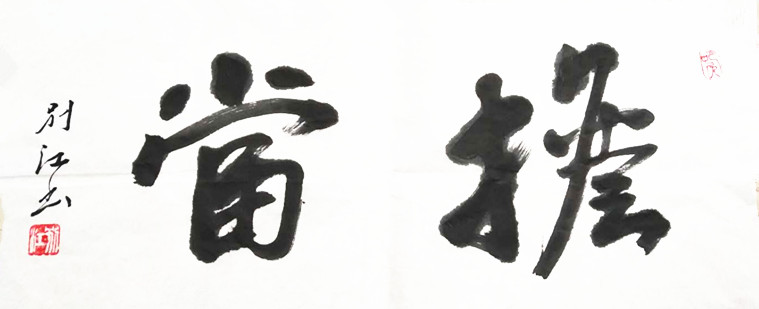 擔當
別江书